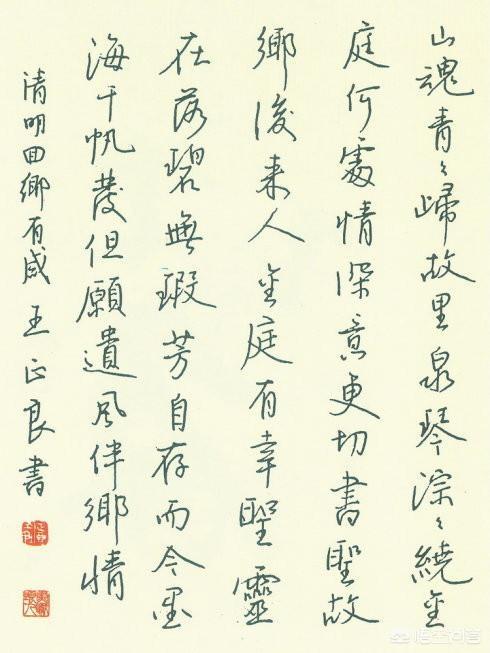 山魂青々歸故里泉琴淙々繞金
庭何處情深意更切書聖故
鄉後来人金庭有幸聖靈
在落碧無瑕芳自存而今墨
海千帆發但願遺風伴鄉情
清明回鄉有感王正良書
悟空问答